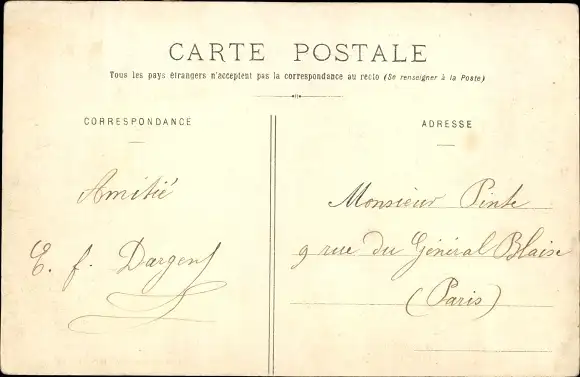 CARTE POSTALE
Tous les pays étrangers n'acceptent pas la correspondance au recto (Se renseigner à la Poste)
CORRESPONDANCE
Amitié
E. f. Dargent
ADRESSE
Monsieur Pinte
9 rue du Général Blaise
(Paris)